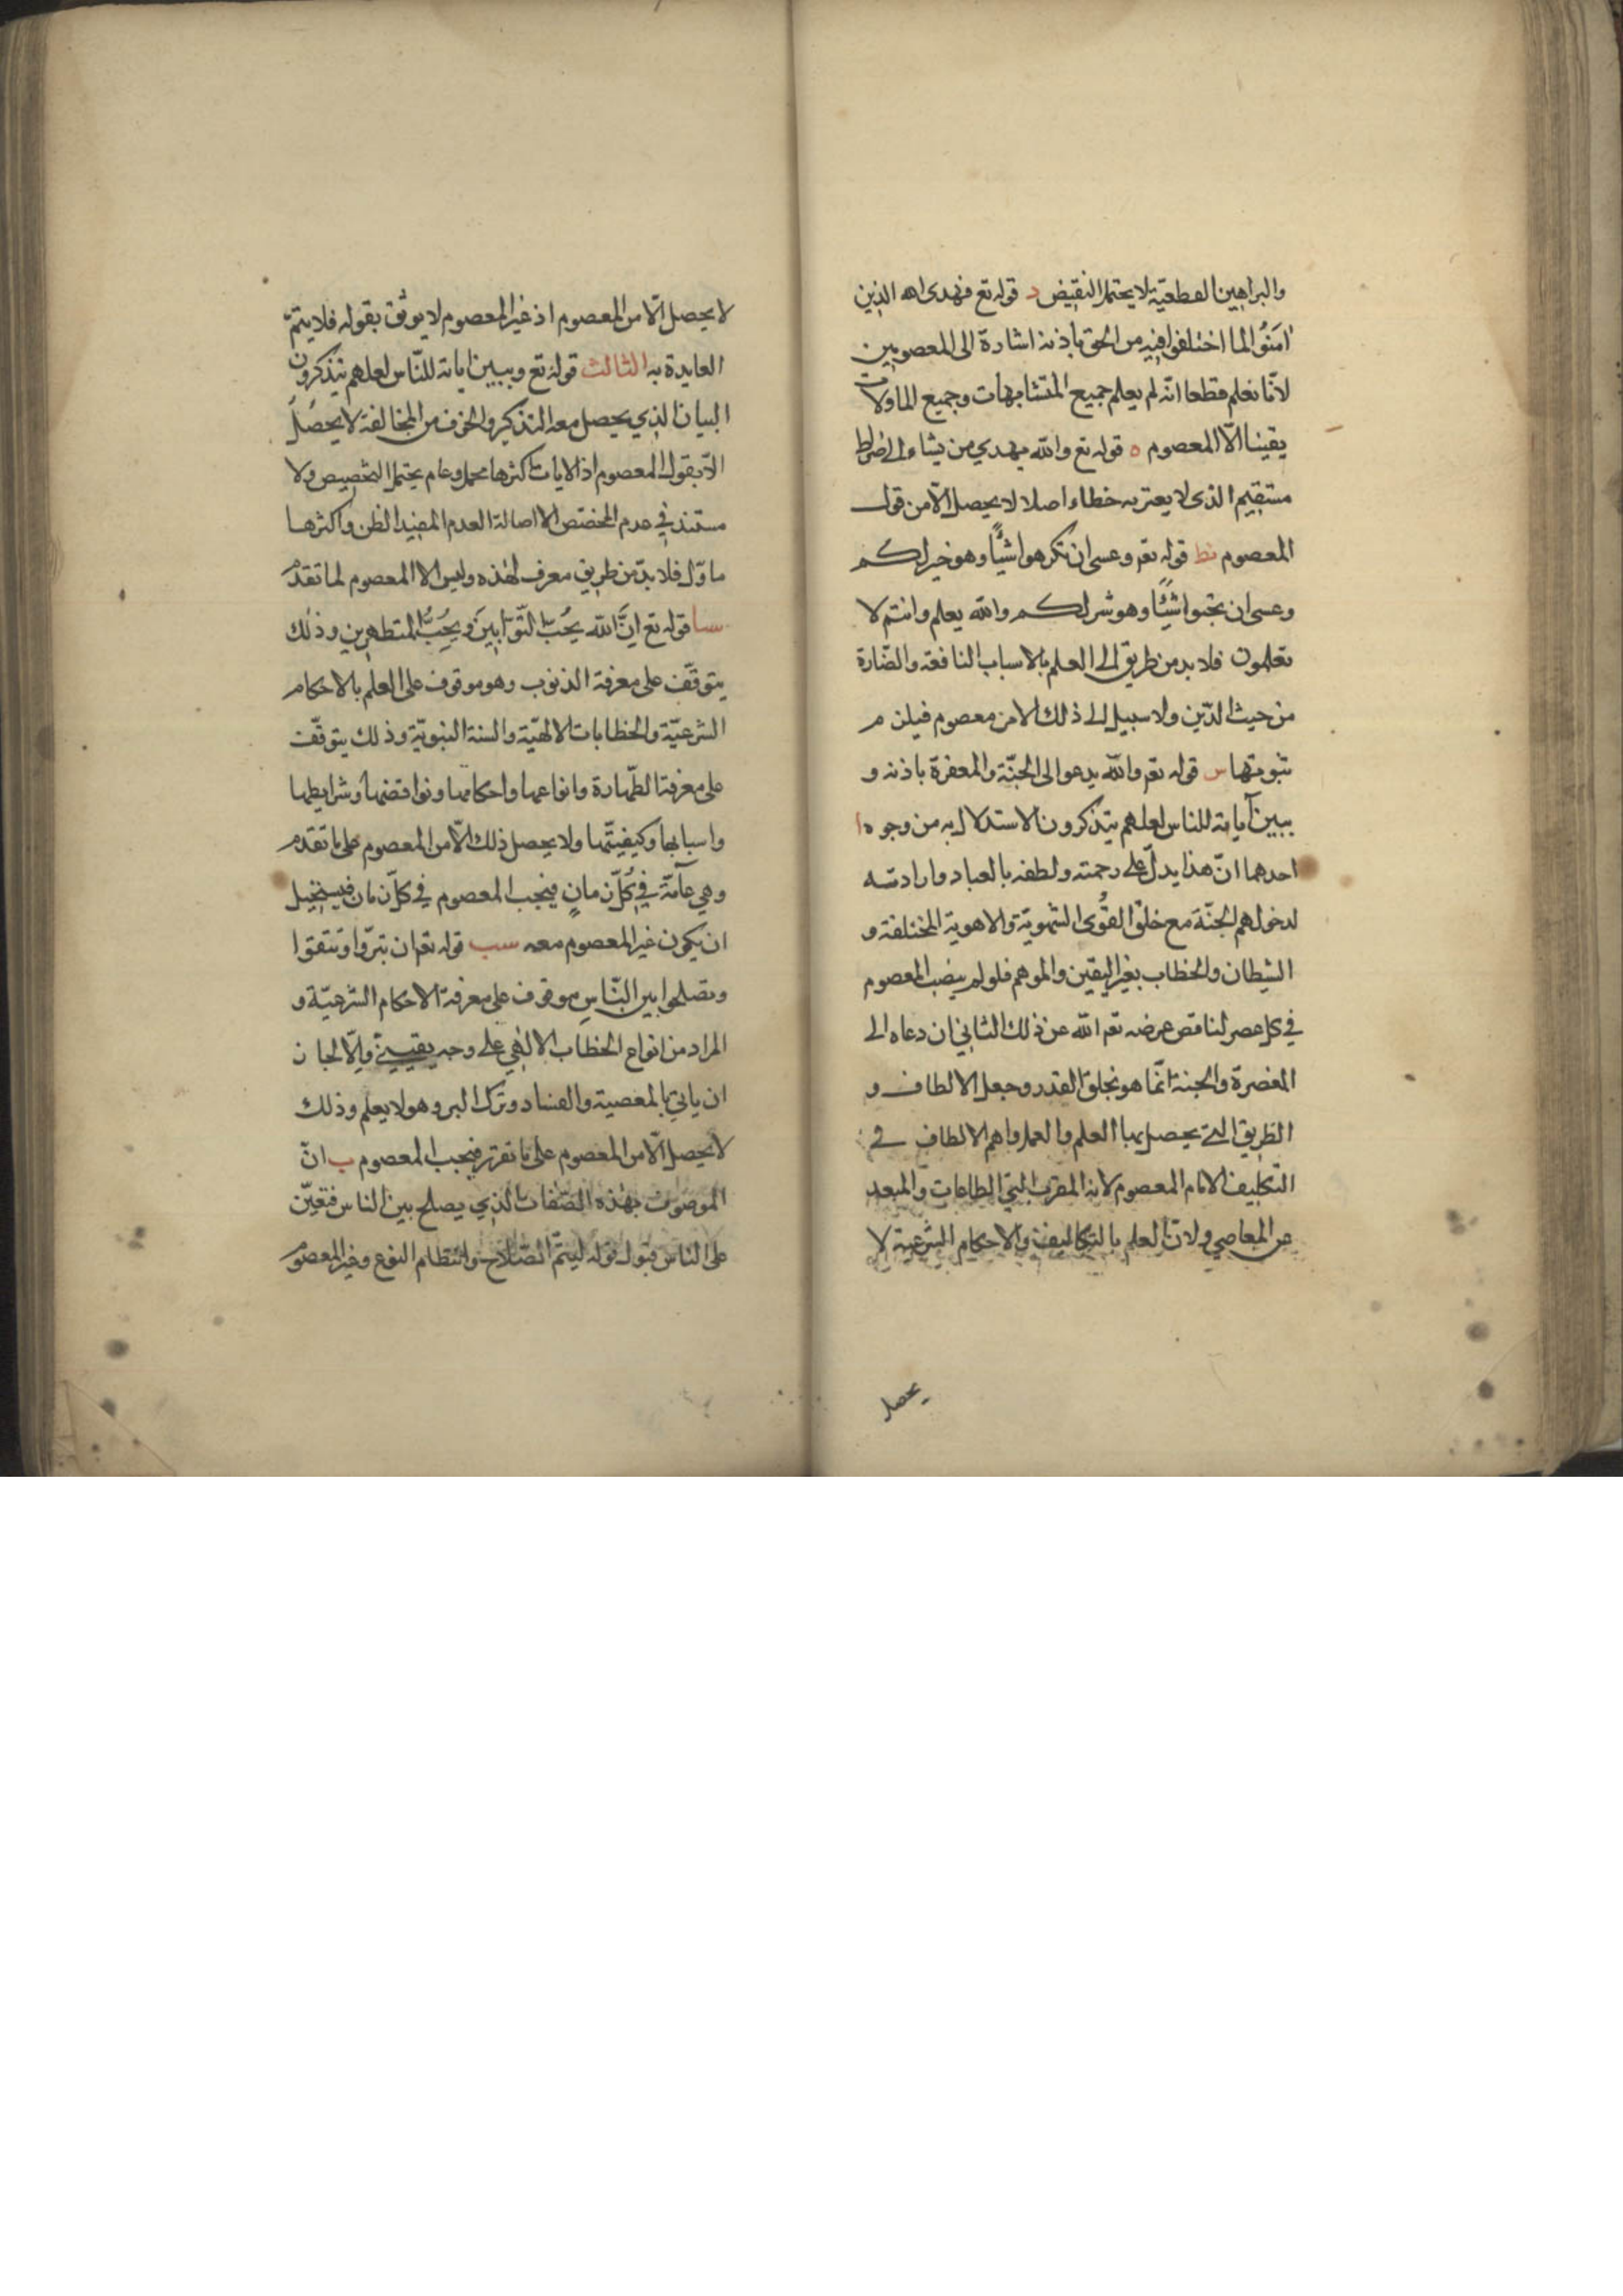 والبراهين القطعية لا يحتمل النقيض د قوله تع فهدى الله الذين
اٰمَنُوا لما اختلفوا فيه من الحق باذنه اشارة الى المعصومين
لانّا نعلم قطعا انّه لم يعلم جميع المتشابهات وجميع الماولات
يقينا الّا المعصوم ه قوله تع والله يهدي من يشاء الى صراط
مستقيم الذى لا يعتريه خطاء اصلا لا يحصل الّا من قول
المعصوم نط قوله تعم وعسى ان تكرهوا شيئًا وهو خير لكم
وعسى ان تحبوا شيئًا وهو شر لكم والله يعلم وانتم لا
تعلمون فلا بد من طريق الى العلم بالاسباب النافعة والضّارة
من حيث الدّين ولا سبيل الى ذلك الا من معصوم فيلزم
ثبوتها س قوله تعم والله يدعوا الى الجنّة والمغفرة باذنه و
يبين آياته للناس لعلهم يتذكرون الاستدلال به من وجوه ا
احدهما انّ هذا يدلّ على رحمته ولطفه بالعباد وارادته
لدخولهم الجنّة مع خلق القُوى الشهويّة والاهوية المختلفة و
الشيطان والخطاب بغير اليقين والموهم فلو لم ينصب المعصوم
في كل عصر لناقض غرضه تعم الله عن ذلك الثاني ان دعاه الى
المغفرة والجنة انّما هو بخلق القدر وجعل الالطاف و
الطريق التي يحصل بها العلم والعمل واهم الالطاف في
التكليف الامام المعصوم لانه المقرب الى الطاعات والمبعد
عن المعاصي ولانّ العلم بالتكاليف والاحكام الشرعية لا
يحصل
لا يحصل الّا من المعصوم اذ غير المعصوم لا يوثق بقوله فلا يتمّ
العايدة به الثالث قوله تع ويبين اياته للنّاس لعلهم يتذكرون
البيان الذي يحصل معه التذكير والخوف من المخالفة لا يحصل
الّا بقول المعصوم اذ الايات اكثرها مجمل وعام يحتمل التخصيص ولا
مستند في عدم المخصّص الا اصالة العدم المفيد الظن واكثرها
ماوّل فلا بدّ من طريق معرف لهذه وليس الا المعصوم لما تقدم
سا قوله تع انَّ الله يحُبّ التّوّابينَ ويُحِبُّ المتطهرين وذلك
يتوقّف على معرفة الذنوب وهو موقوف على العلم بالاحكام
الشرعيّة والخطابات الالهيّة والسنة النبويّة وذلك يتوقّف
على معرفة الطّهارة وانواعها واحكامها ونواقضها وشرايطها
واسبابها وكيفيّتها ولا يحصل ذلك الّا من المعصوم على ما تقدم
وهي عآمّة في كُلّ زمانٍ فيجب المعصوم في كلّ زمان فيستحيل
ان يكون غير المعصوم معه سب قوله تعم ان تبرّوا وتتقوا
وتصلحوا بين النّاسِ موقوف على معرفة الاحكام الشرعيّة و
المراد من انواع الخطاب الالهي على وجه يقيني والّا لجاز
ان ياتي بالمعصية والفساد وترك البر وهو لا يعلم وذلك
لا يحصل الّا من المعصوم على ما تقرّر فيجب المعصوم ب انّ
الموصوف بهذه الصّفات الذي يصلح بين الناس فتعيّن
على الناس قبول قوله ليتمّ الصّلاح وانتظام النوع وغير المعصوم